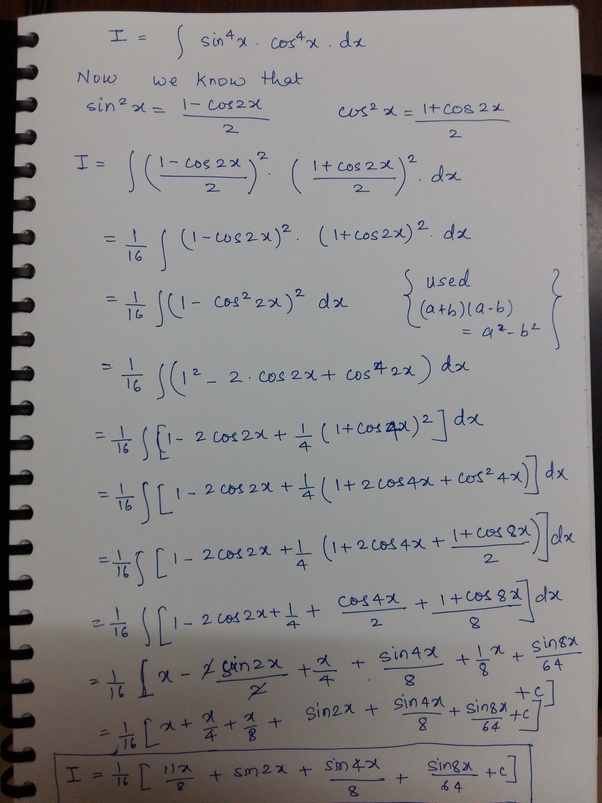 I = ∫ sin⁴x · cos⁴x · dx
Now we know that
sin²x = (1 - cos2x)/2    cos²x = (1 + cos2x)/2
I = ∫ ((1 - cos2x)/2)² · ((1 + cos2x)/2)² · dx
= 1/16 ∫ (1 - cos2x)² · (1 + cos2x)² · dx
= 1/16 ∫ (1 - cos²2x)² dx    { used (a+b)(a-b) = a² - b² }
= 1/16 ∫ (1² - 2·cos2x + cos⁴2x) dx
= 1/16 ∫ [1 - 2cos2x + 1/4 (1 + cos4x)²] dx
= 1/16 ∫ [1 - 2cos2x + 1/4 (1 + 2cos4x + cos²4x)] dx
= 1/16 ∫ [1 - 2cos2x + 1/4 (1 + 2cos4x + (1 + cos8x)/2)] dx
= 1/16 ∫ [1 - 2cos2x + 1/4 + cos4x/2 + (1 + cos8x)/8] dx
= 1/16 [x - 2sin2x/2 + x/4 + sin4x/8 + 1/8 x + sin8x/64 + c]
= 1/16 [x + x/4 + x/8 + sin2x + sin4x/8 + sin8x/64 + c]
I = 1/16 [11x/8 + sin2x + sin4x/8 + sin8x/64 + c]